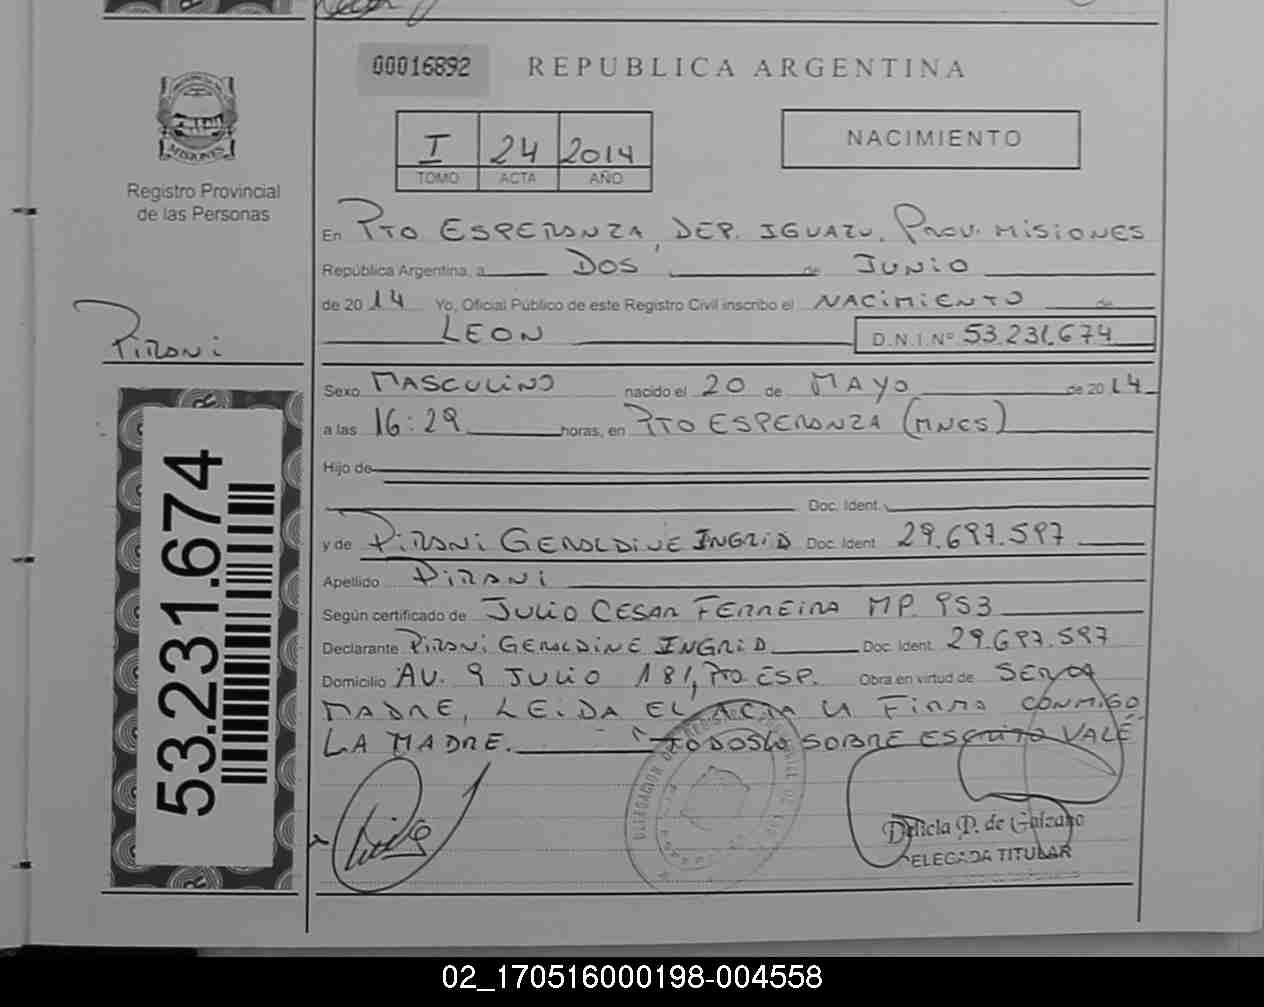 00016892
REPUBLICA ARGENTINA
MISIONES
Registro Provincial
de las Personas
I 24 2014
TOMO ACTA AÑO
NACIMIENTO
En PTO ESPERANZA, DEP. IGUAZU, PROV. MISIONES
República Argentina, a DOS de JUNIO
de 2014 Yo, Oficial Público de este Registro Civil inscribo el NACIMIENTO de
LEON D.N.I. Nº 53.231.674
PIRANi
Sexo MASCULINO nacido el 20 de MAYO de 2014
a las 16:29 horas, en PTO ESPERANZA (MNES)
Hijo de
Doc. Ident.
y de PIRANi GERALDINE INGRID Doc. Ident 29.697.597
Apellido PIRANi
Según certificado de JULIO CESAR FERREIRA MP. 953
Declarante PIRANi GERALDINE INGRID Doc. Ident. 29.697.597
Domicilio AV. 9 JULIO 181, PTO. ESP. Obra en virtud de SER LA
MADRE, LEIDA EL ACTA LA FIRMA CONMIGO
LA MADRE. "TODOS LO SOBRE ESCRITO VALE
53.231.674
Delicia P. de Galzano
DELEGADA TITULAR
02_170516000198-004558